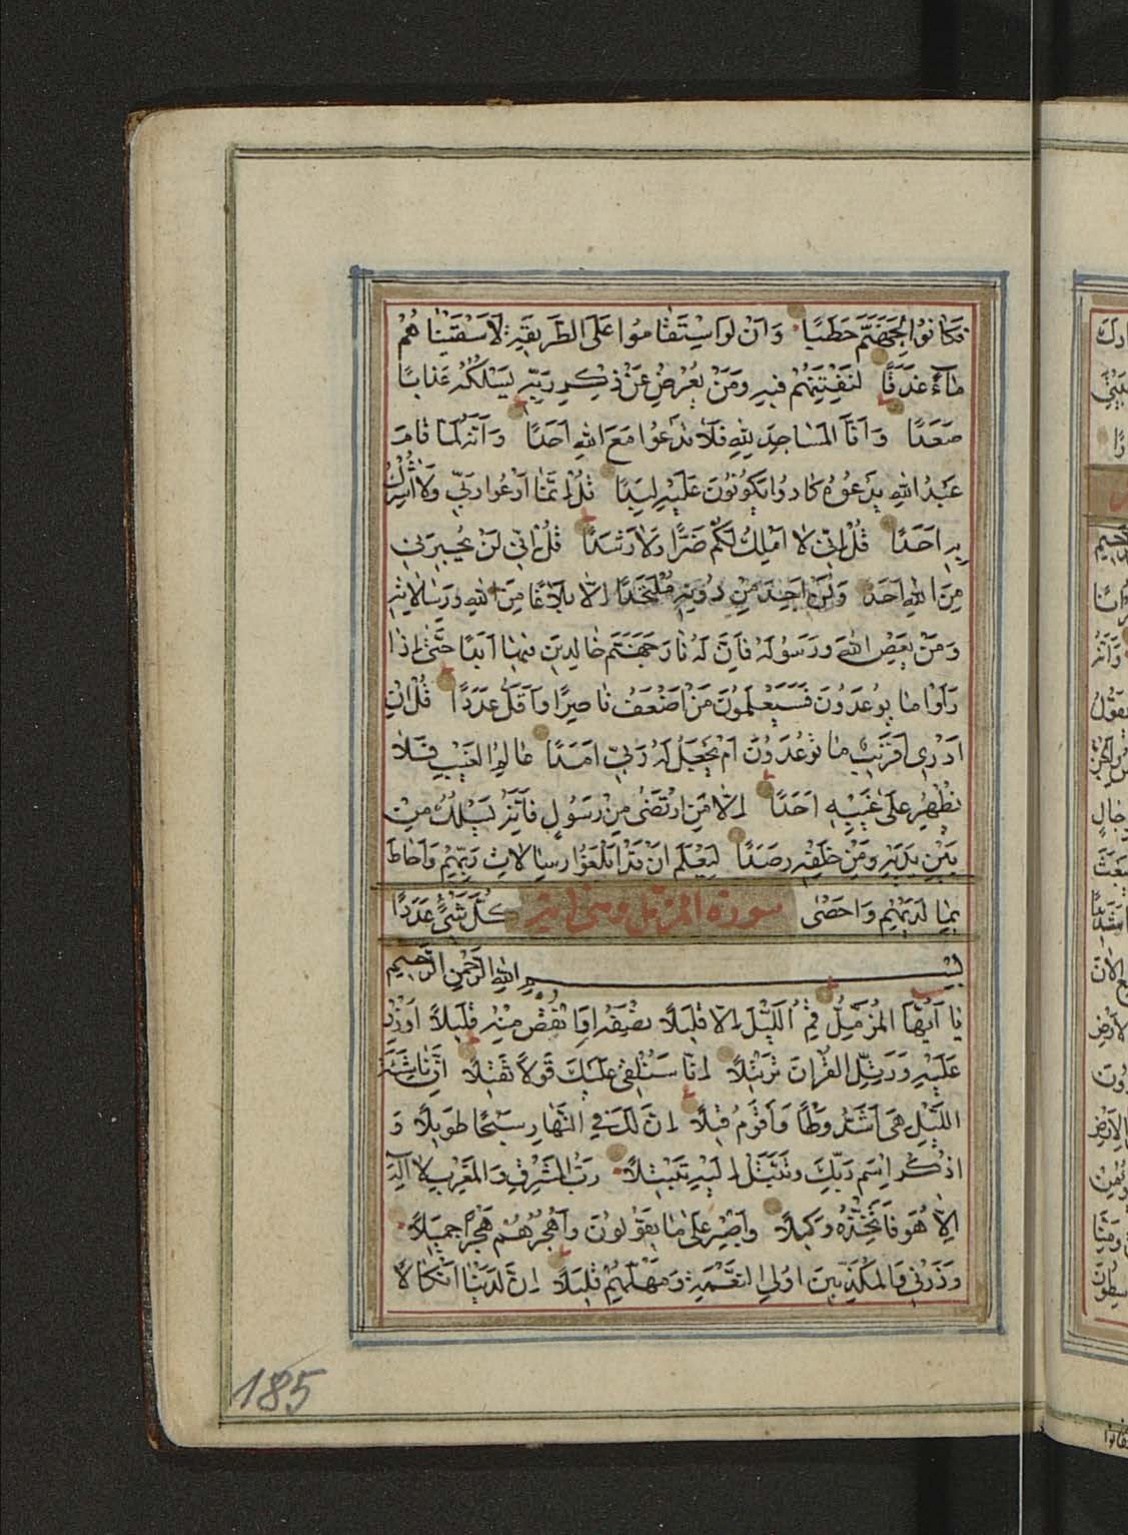 فَكَانُوا لِجَهَنَّمَ حَطَبًا وَاَنْ لَوِاسْتَقَامُوا عَلَى الطَّرِيقَةِ لَاَسْقَيْنَاهُمْ
مَآءً غَدَقًا لِنَفْتِنَهُمْ فِيهِ وَمَنْ يُعْرِضْ عَنْ ذِكْرِ رَبِّهِ يَسْلُكْهُ عَذَابًا
صَعَدًا وَاَنَّ الْمَسَاجِدَ لِلّٰهِ فَلَا تَدْعُوا مَعَ اللّٰهِ اَحَدًا وَاَنَّهُ لَمَّا قَامَ
عَبْدُ اللّٰهِ يَدْعُوهُ كَادُوا يَكُونُونَ عَلَيْهِ لِبَدًا قُلْ اِنَّمَا اَدْعُوا رَبِّي وَلَا اُشْرِكُ
بِهِ اَحَدًا قُلْ اِنِّي لَا اَمْلِكُ لَكُمْ ضَرًّا وَلَا رَشَدًا قُلْ اِنِّي لَنْ يُجِيرَنِي
مِنَ اللّٰهِ اَحَدٌ وَلَنْ اَجِدَ مِنْ دُونِهِ مُلْتَحَدًا اِلَّا بَلَاغًا مِنَ اللّٰهِ وَرِسَالَاتِهِ
وَمَنْ يَعْصِ اللّٰهَ وَرَسُولَهُ فَاِنَّ لَهُ نَارَ جَهَنَّمَ خَالِدِينَ فِيهَا اَبَدًا حَتّٰى اِذَا
رَاَوْا مَا يُوعَدُونَ فَسَيَعْلَمُونَ مَنْ اَضْعَفُ نَاصِرًا وَاَقَلُّ عَدَدًا قُلْ اِنْ
اَدْرِي اَقَرِيبٌ مَا تُوعَدُونَ اَمْ يَجْعَلُ لَهُ رَبِّي اَمَدًا عَالِمُ الْغَيْبِ فَلَا
يُظْهِرُ عَلٰى غَيْبِهِ اَحَدًا اِلَّا مَنِ ارْتَضٰى مِنْ رَسُولٍ فَاِنَّهُ يَسْلُكُ مِنْ
بَيْنِ يَدَيْهِ وَمِنْ خَلْفِهِ رَصَدًا لِيَعْلَمَ اَنْ قَدْ اَبْلَغُوا رِسَالَاتِ رَبِّهِمْ وَاَحَاطَ
بِمَا لَدَيْهِمْ وَاَحْصٰى سورة المزمل كُلَّ شَيْءٍ عَدَدًا
بِسْمِ اللّٰهِ الرَّحْمٰنِ الرَّحِيمِ
يَا اَيُّهَا الْمُزَّمِّلُ قُمِ اللَّيْلَ اِلَّا قَلِيلًا نِصْفَهُ اَوِ انْقُصْ مِنْهُ قَلِيلًا اَوْ زِدْ
عَلَيْهِ وَرَتِّلِ الْقُرْاٰنَ تَرْتِيلًا اِنَّا سَنُلْقِي عَلَيْكَ قَوْلًا ثَقِيلًا اِنَّ نَاشِئَةَ
اللَّيْلِ هِيَ اَشَدُّ وَطْأً وَاَقْوَمُ قِيلًا اِنَّ لَكَ فِي النَّهَارِ سَبْحًا طَوِيلًا وَ
اذْكُرِ اسْمَ رَبِّكَ وَتَبَتَّلْ اِلَيْهِ تَبْتِيلًا رَبُّ الْمَشْرِقِ وَالْمَغْرِبِ لَا اِلٰهَ
اِلَّا هُوَ فَاتَّخِذْهُ وَكِيلًا وَاصْبِرْ عَلٰى مَا يَقُولُونَ وَاهْجُرْهُمْ هَجْرًا جَمِيلًا
وَذَرْنِي وَالْمُكَذِّبِينَ اُولِي النَّعْمَةِ وَمَهِّلْهُمْ قَلِيلًا اِنَّ لَدَيْنَا اَنْكَالًا
185